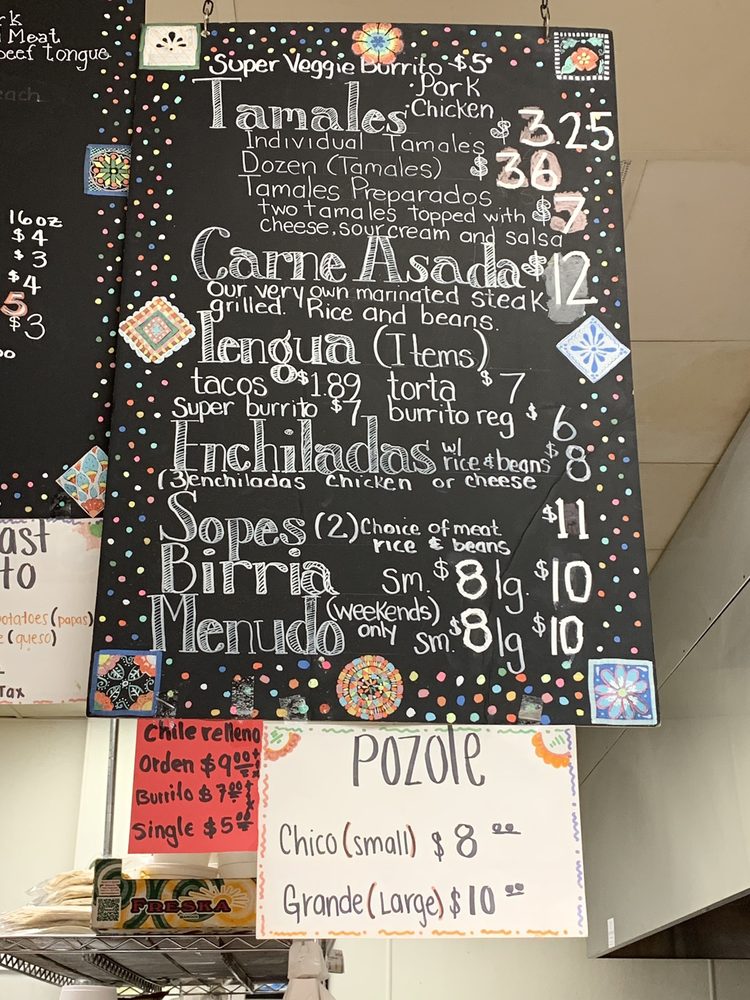 rk
Meat
beef tongue
each
16oz
$4
$3
$4
5
$3
Super Veggie Burrito $5
Tamales
·Pork
·Chicken
Individual Tamales $3.25
Dozen (Tamales) $36
Tamales Preparados
two tamales topped with $7
cheese, sour cream and salsa
Carne Asada $12
our very own marinated steak
grilled. Rice and beans.
lengua (Items)
tacos $1.89 torta $7
Super burrito $7 burrito reg $6
Enchiladas w/ rice & beans $8
(3)enchiladas chicken or cheese
Sopes (2) Choice of meat $11
rice & beans
Birria sm. $8 lg. $10
Menudo (weekends) only sm. $8 lg $10
ast
to
potatoes (papas)
e (queso)
Tax
Chile relleno
Orden $9.00
Burrito $7.00
Single $5.00
FRESKA
Pozole
Chico (small) $8 00
Grande (Large) $10 00